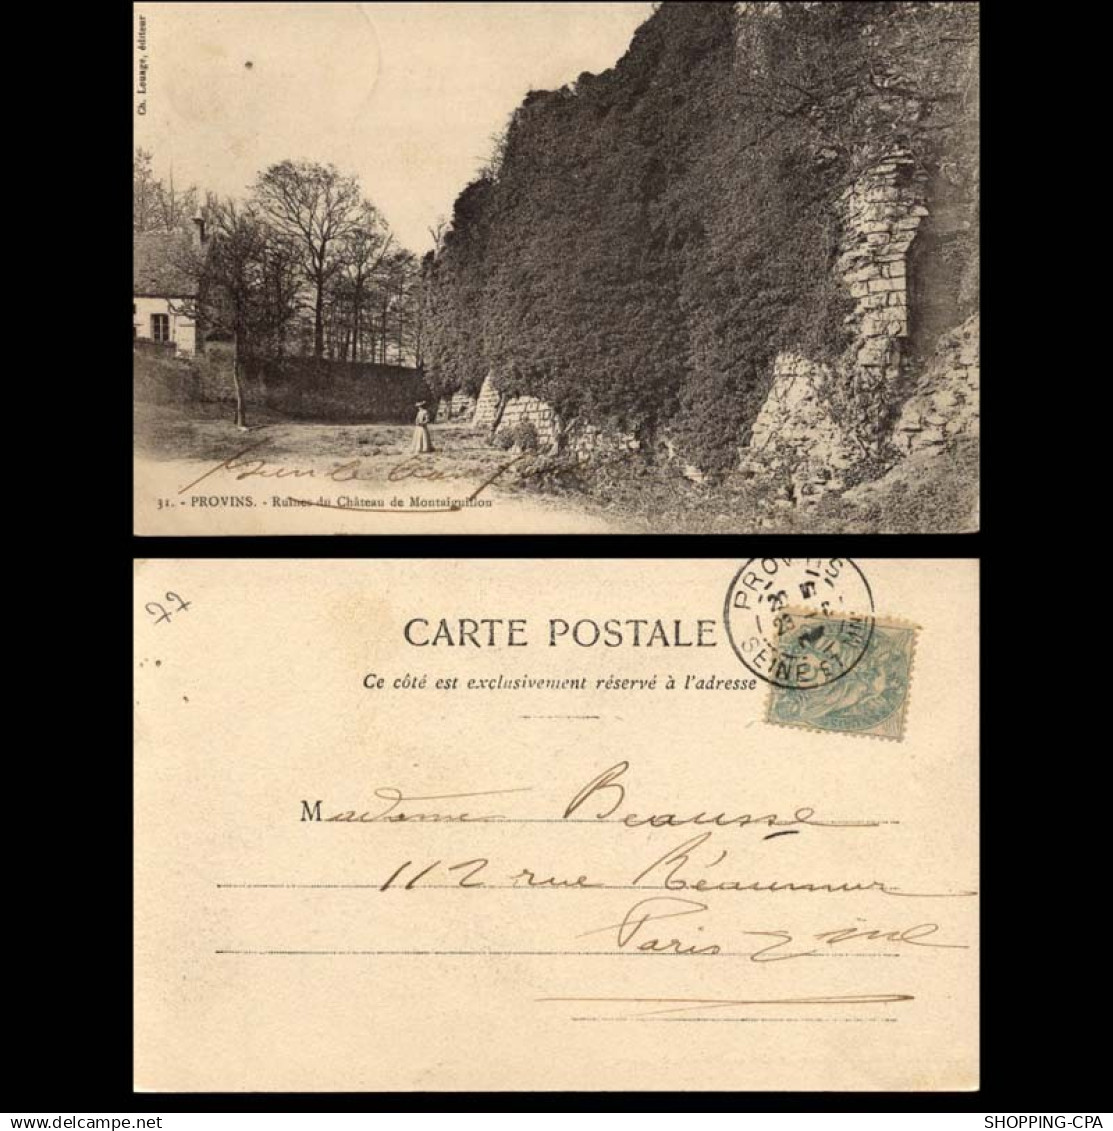 Ch. Louage, éditeur
31. - PROVINS. - Ruines du Château de Montaiguillon
77
CARTE POSTALE
Ce côté est exclusivement réservé à l'adresse
PROVINS
SEINE ET
Madame Beausse
112 rue Réaumur
Paris 2 me
SHOPPING-CPA